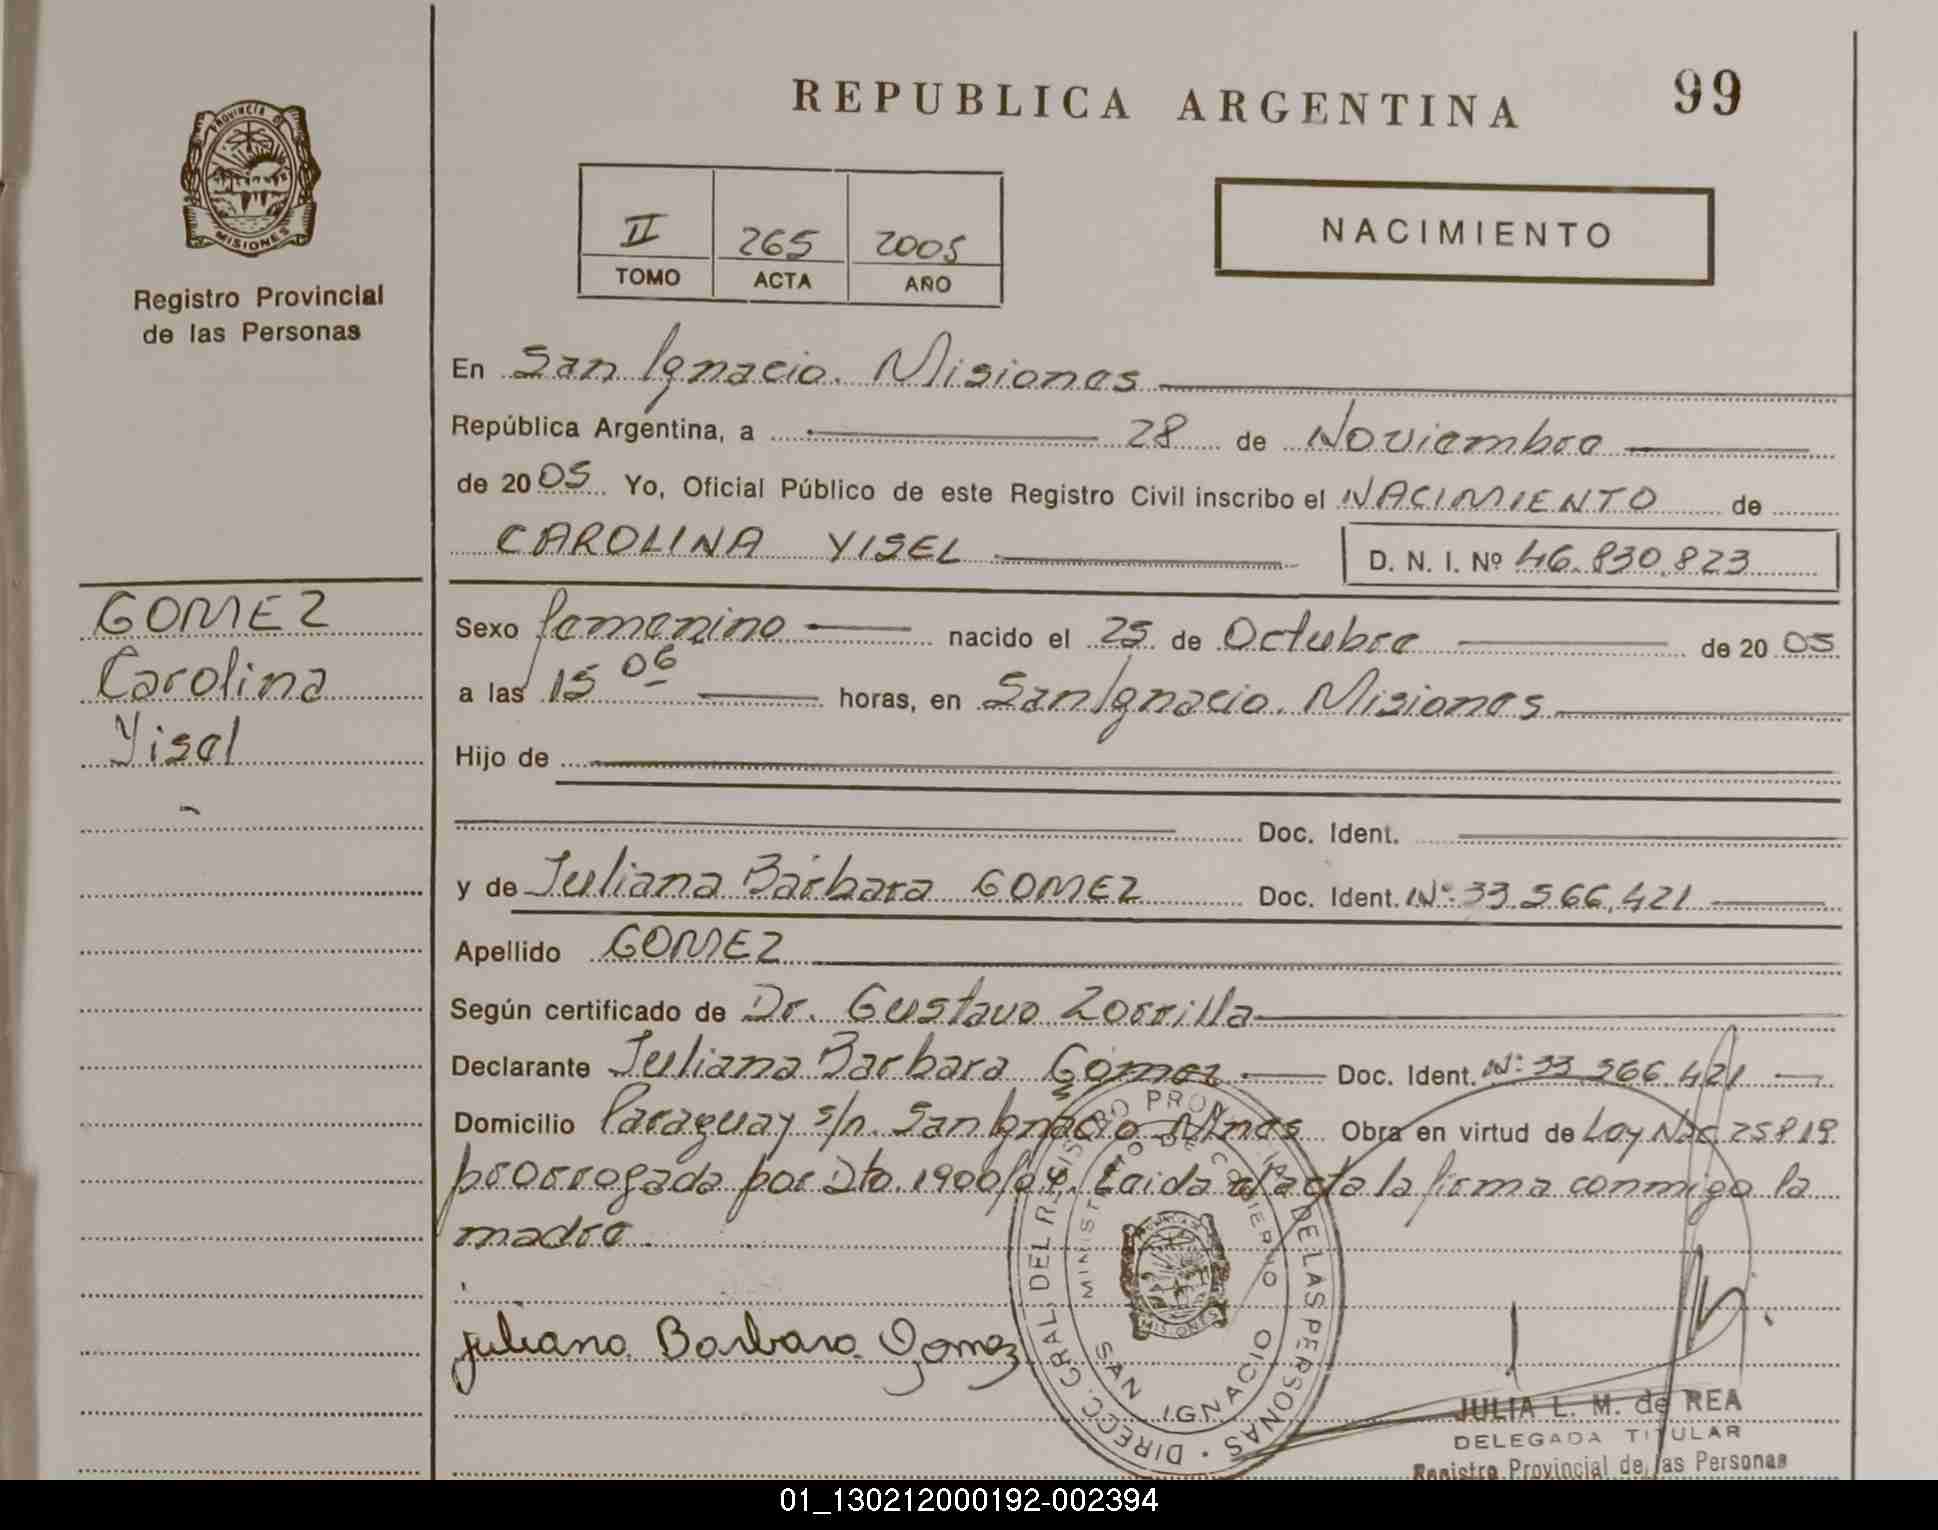 REPUBLICA ARGENTINA
99
PROVINCIA DE
MISIONES
Registro Provincial
de las Personas
II 265 2005
TOMO ACTA AÑO
NACIMIENTO
En San Ignacio. Misiones
República Argentina, a 28 de Noviembre
de 2005 Yo, Oficial Público de este Registro Civil inscribo el NACIMIENTO de
CAROLINA YISEL D. N. I. Nº 46.830.823
GOMEZ
Carolina
Yisel
Sexo femenino nacido el 25 de Octubre de 2005
a las 15 06 horas, en San Ignacio. Misiones
Hijo de
Doc. Ident.
y de Juliana Bárbara GOMEZ Doc. Ident. Nº: 33.566.421
Apellido GOMEZ
Según certificado de Dr. Gustavo Zorrilla
Declarante Juliana Barbara Gómez Doc. Ident. Nº: 33 566 421
Domicilio Paraguay s/n. San Ignacio Mnes Obra en virtud de Ley Nac 25819
prorrogada por Dto. 1900/04. Leida el acta la firma conmigo la
madre.
juliana Barbara Gomez
DIRECC. GRAL. DEL REGISTRO PROVINCIAL DE LAS PERSONAS
MINISTERIO DE GOBIERNO
MISIONES
SAN IGNACIO
JULIA L. M. de REA
DELEGADA TITULAR
Registro Provincial de las Personas
01_130212000192-002394